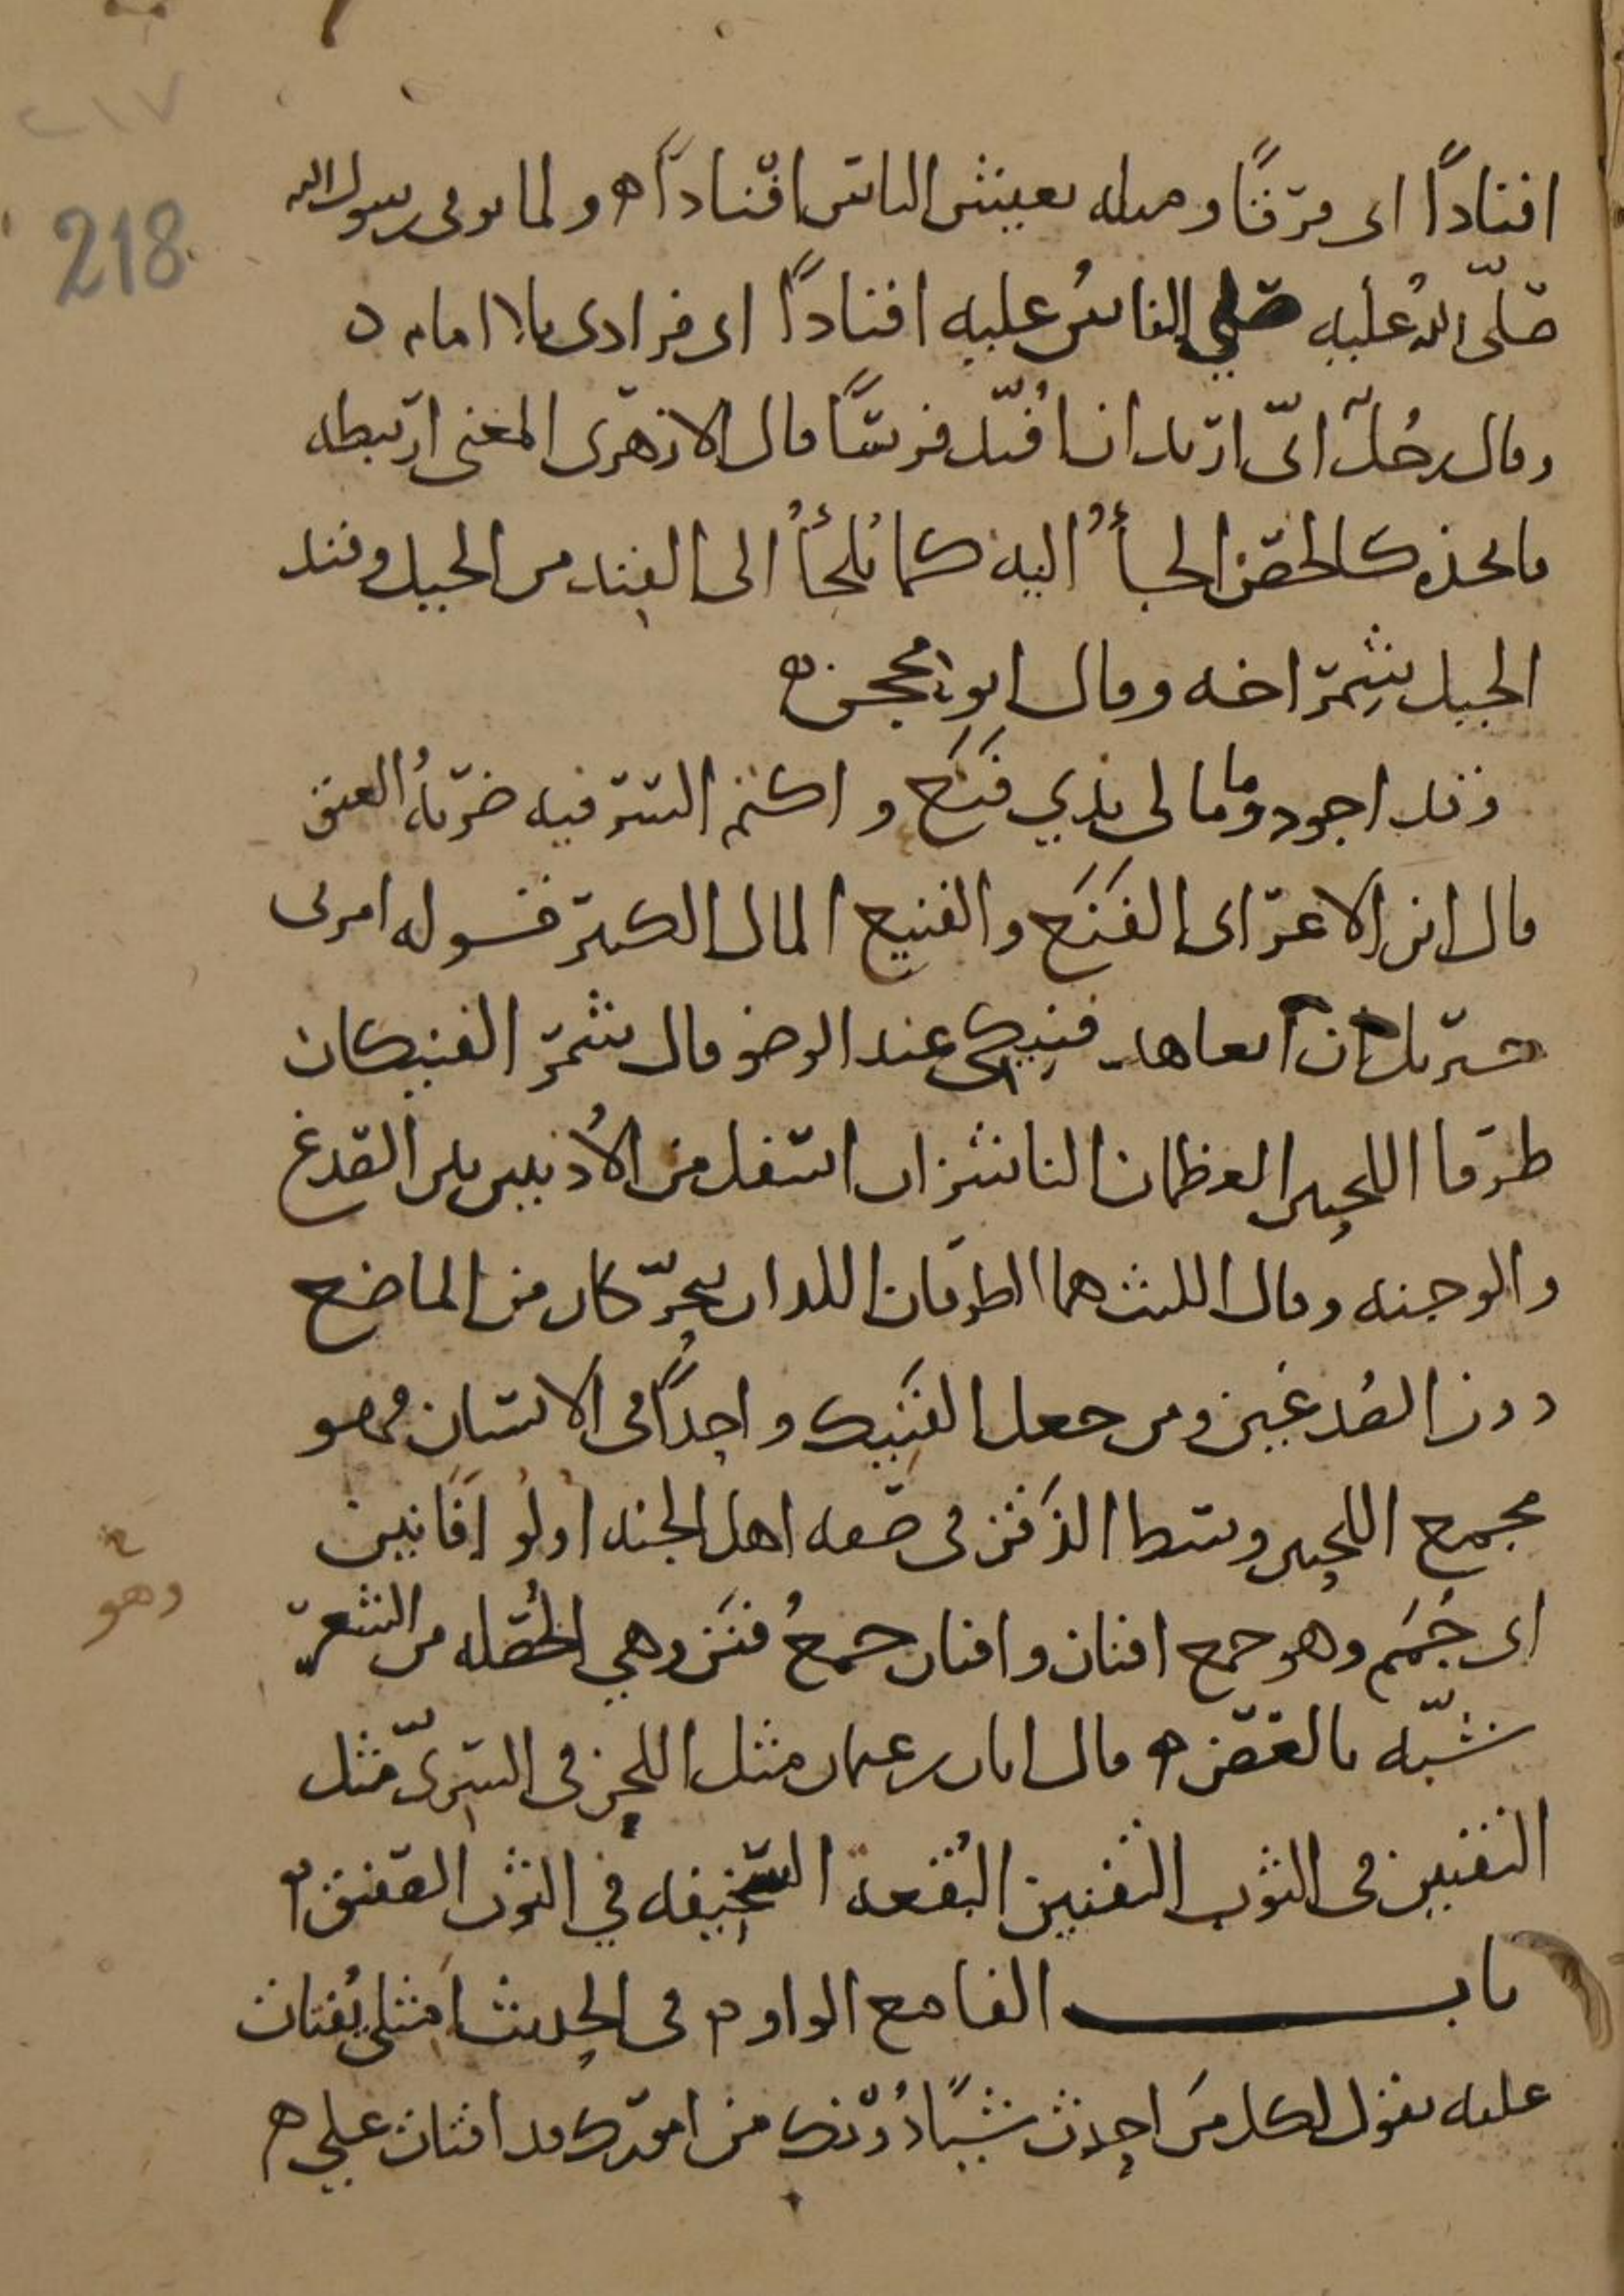 ٢١٧
218
افنادًا اى فرقًا ومثله يعيش الناس افنادًا ه ولما توفى رسول الله
صلّى الله عليه صلي الناسُ عليه افنادًا اى فرادى بلا امام ه
وقال رجُلٌ انّى اريد ان اُفنّد فرسًا قال الازهرى المعنى ارتبطه
فاتخذه كالحصن الجأُ اليه كما يُلجأُ الى الفِند من الجبل وفند
الجبل شِمراخه وقال ابو محجن ه
وقد اجود وما مالى بذي فَنَع واكتم السر فيه ضربةُ العنق
قال ابن الاعرابى الفَنَع والفنيع المال الكثير قوله امرنى
جبريل ان اتعاهد فنيكي عند الوضو قال شمر الفنيكان
طرفا اللحيين العظمان الناشزان اسفل من الأذنين بين الصدغ
والوجنه وقال الليث هما الطرفان اللذان يتحرّكان من الماضغ
دون الصُدغين ومن جعل الفَنِيك واحدًا فى الانسان فهو
مجمع اللحيين وسط الذَقن فى صفه اهل الجنه اُولُو اَفَانين
اى جُمَم وهو جمع افنان وافنان جمعُ فنَن وهي الخُصله من الشعر
وهو
شبّه بالغصن ه قال ابان بن عثمان مثل اللحن فى السرىّ مثل
التفنين فى الثوب التفنين البُقعه السخيفه في الثوب الصفيق ه
باب الفا مع الواو ه فى الحديث امثلى يُفتات
عليه يقول لكل من احدث شيئًا دُونك من امورك قد افتات علي ه